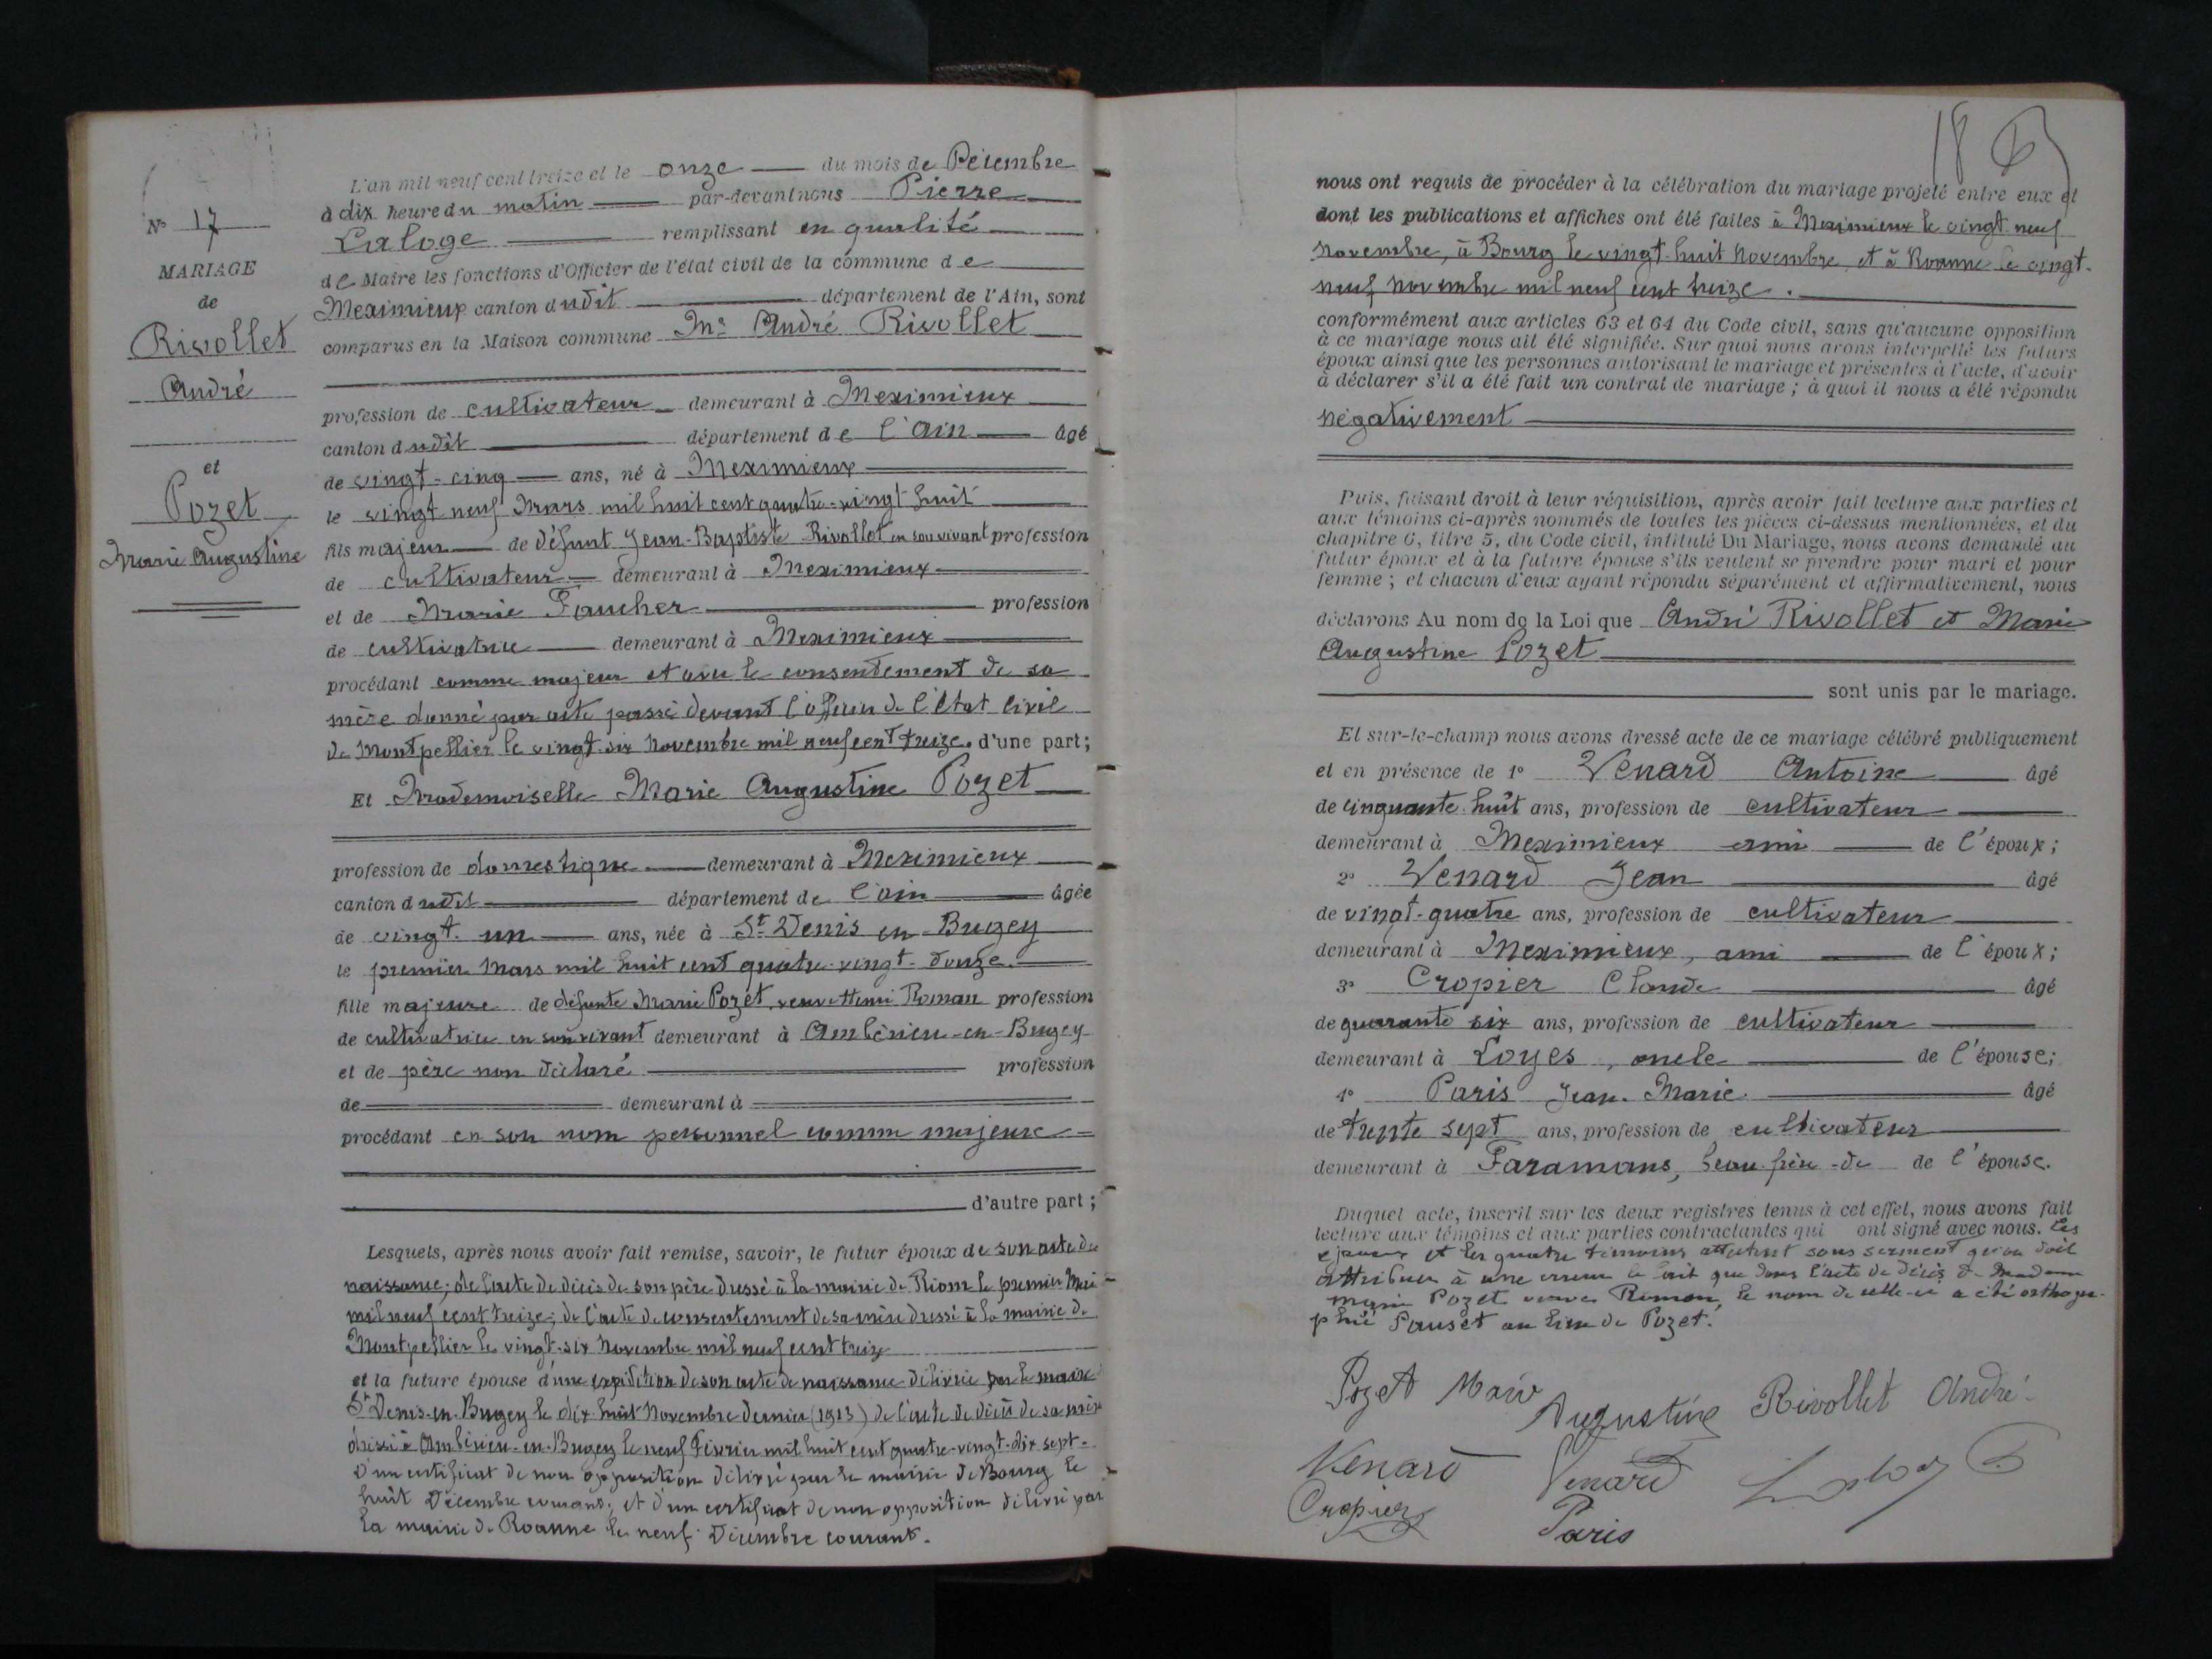 L'an mil neuf cent treize et le onze du mois de Décembre
à dix heure du matin par-devant nous Pierre
Laloge remplissant en qualité
de Maire les fonctions d'Officier de l'état civil de la commune de
Meximieux canton dudit département de l'Ain, sont
comparus en la Maison commune Mr André Rivollet
profession de cultivateur demeurant à Meximieux
canton dudit département de l'Ain âgé
de vingt-cinq ans, né à Meximieux
le vingt neuf Mars mil huit cent quatre-vingt huit
fils majeur de défunt Jean-Baptiste Rivollet en son vivant profession
de cultivateur demeurant à Meximieux
et de Marie Faucher profession
de cultivatrice demeurant à Meximieux
procédant comme majeur et avec le consentement de sa
mère donné par acte passé devant l'officier de l'Etat Civil
de Montpellier le vingt-six Novembre mil neuf cent treize. d'une part;
Et Mademoiselle Marie Augustine Pozet
profession de domestique demeurant à Meximieux
canton dudit département de l'ain âgée
de vingt-un ans, née à St Denis en Bugey
le premier Mars mil huit cent quatre-vingt-douze
fille majeure de défunte Marie Pozet, veuve Henri Roman profession
de cultivatrice en son vivant demeurant à Ambérieu-en-Bugey
et de père non déclaré profession
de demeurant à
procédant en son nom personnel comme majeure
d'autre part;
Lesquels, après nous avoir fait remise, savoir, le futur époux de son acte de
naissance; de l'acte de décès de son père dressé à la mairie de Riom le premier Mai
mil neuf cent treize; de l'acte de consentement de sa mère dressé à la mairie de
Montpellier le vingt-six Novembre mil neuf cent treize
et la future épouse d'une expédition de son acte de naissance délivrée par le maire
St Denis-en-Bugey le dix-huit Novembre dernier (1913) de l'acte de décès de sa mère
dressé à Ambérieu-en-Bugey le neuf Février mil huit cent quatre-vingt-dix sept-
d'un certificat de non opposition délivré par la mairie de Bourg le
huit Décembre courant; et d'un certificat de non opposition délivré par
la mairie de Roanne le neuf Décembre courant.
No 17
MARIAGE
de
Rivollet
André
et
Pozet
Marie Augustine
18
nous ont requis de procéder à la célébration du mariage projeté entre eux et
dont les publications et affiches ont été faites à Meximieux le vingt neuf
Novembre, à Bourg le vingt-huit Novembre et à Roanne le vingt-
neuf Novembre mil neuf cent treize.
conformément aux articles 63 et 64 du Code civil, sans qu'aucune opposition
à ce mariage nous ait été signifiée. Sur quoi nous avons interpellé les futurs
époux ainsi que les personnes autorisant le mariage et présentes à l'acte, d'avoir
à déclarer s'il a été fait un contrat de mariage; à quoi il nous a été répondu
négativement
Puis, faisant droit à leur réquisition, après avoir fait lecture aux parties et
aux témoins ci-après nommés de toutes les pièces ci-dessus mentionnées, et du
chapitre 6, titre 5, du Code civil, intitulé Du Mariage, nous avons demandé au
futur époux et à la future épouse s'ils veulent se prendre pour mari et pour
femme; et chacun d'eux ayant répondu séparément et affirmativement, nous
déclarons Au nom de la Loi que André Rivollet et Marie
Augustine Pozet
sont unis par le mariage.
Et sur-le-champ nous avons dressé acte de ce mariage célébré publiquement
et en présence de 1o Venard Antoine âgé
de cinquante huit ans, profession de cultivateur
demeurant à Meximieux ami de l'époux;
2o Venard Jean âgé
de vingt-quatre ans, profession de cultivateur
demeurant à Meximieux, ami de l'époux;
3o Cropier Claude âgé
de quarante six ans, profession de cultivateur
demeurant à Loyes, oncle de l'épouse;
4o Paris Jean-Marie âgé
de trente sept ans, profession de cultivateur
demeurant à Faramans, beau-frère de de l'épouse.
Duquel acte, inscrit sur les deux registres tenus à cet effet, nous avons fait
lecture aux témoins et aux parties contractantes qui ont signé avec nous. Les
époux et les quatre témoins attestent sous serment qu'on doit
attribuer à une erreur le fait que dans l'acte de décès de Madame
Marie Pozet veuve Roman, le nom de celle-ci a été orthogra-
phié Pauset au lieu de Pozet.
Pozet Marie Augustine Rivollet André
Venard Venard
Cropier Paris